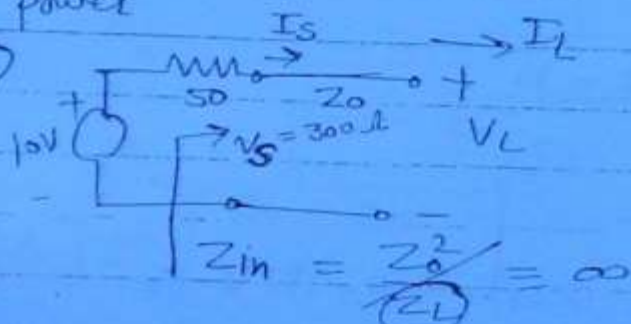 power
Is → IL
50 Zo +
+ 10V Vs = 300Ω VL
- -
Zin = Zo²/ZL = ∞